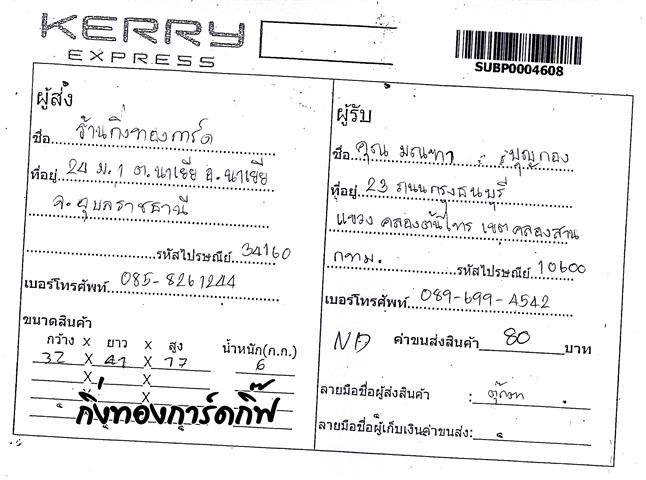 KERRY
EXPRESS
SUBP0004608
ผู้ส่ง
ชื่อ ร้านกิ่งทองการ์ด
ที่อยู่ 24 ม.1 ต.นาเยีย อ.นาเยีย
จ.อุบลราชธานี
รหัสไปรษณีย์ 34160
เบอร์โทรศัพท์ 085-8261244
ขนาดสินค้า
กว้าง x ยาว x สูง น้ำหนัก(ก.ก.)
32 X 41 X 17 6
X X
X X
กิ่งทองการ์ดกิ๊ฟ
ผู้รับ
ชื่อ คุณ มณฑา บุญกอง
ที่อยู่ 23 ถนนกรุงธนบุรี
แขวง คลองต้นไทร เขตคลองสาน
กทม. รหัสไปรษณีย์ 10600
เบอร์โทรศัพท์ 089-699-4542
ND ค่าขนส่งสินค้า 80 บาท
ลายมือชื่อผู้ส่งสินค้า :
ลายมือชื่อผู้เก็บเงินค่าขนส่ง: